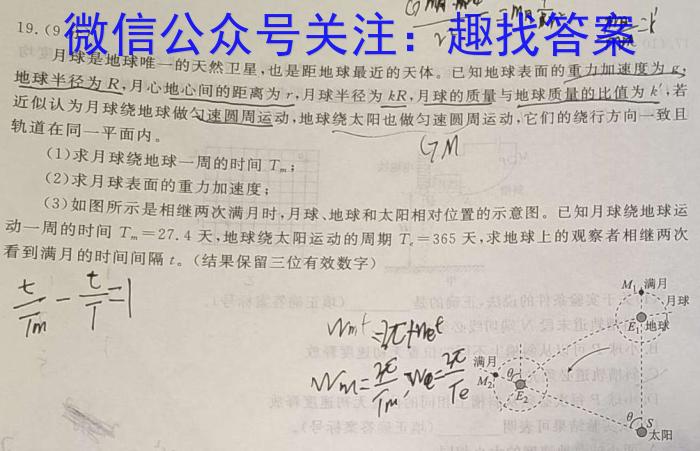 微信公众号关注：趣找答案
19.(9
月球是地球唯一的天然卫星,也是距地球最近的天体。已知地球表面的重力加速度为g,
地球半径为R,月心地心间的距离为r,月球半径为kR,月球的质量与地球质量的比值为k′,若
近似认为月球绕地球做匀速圆周运动,地球绕太阳也做匀速圆周运动,它们的绕行方向一致且
轨道在同一平面内。
GM
(1)求月球绕地球一周的时间 Tm;
(2)求月球表面的重力加速度;
(3)如图所示是相继两次满月时,月球、地球和太阳相对位置的示意图。已知月球绕地球运
动一周的时间 Tm=27.4 天,地球绕太阳运动的周期 Te=365 天,求地球上的观察者相继两次
看到满月的时间间隔 t。(结果保留三位有效数字)
t/Tm - t/T = 1
Wmt=2π+Wet
Wm=2π/Tm, We=2π/Te
M1 满月
月球
E1 地球
满月
M2 θ
E2
θ S
太阳